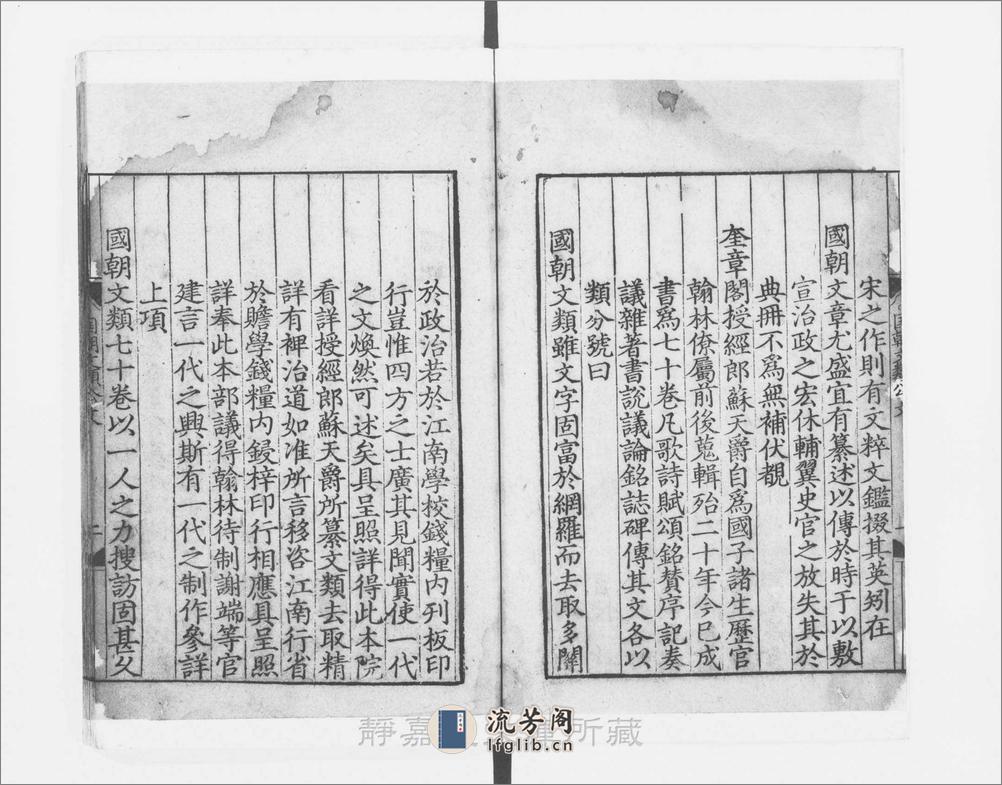 宋之作則有文粹文鑑掇其英矧在
國朝文章尤盛宜有纂述以傳於時于以敷
宣治政之宏休輔翼史官之放失其於
典冊不爲無補伏覩
奎章閣授經郎蘇天爵自爲國子諸生歷官
翰林僚屬前後蒐輯殆二十年今已成
書爲七十卷凡歌詩賦頌銘贊序記奏
議雜著書說議論銘誌碑傳其文各以
類分號曰
國朝文類雖文字固富於網羅而去取多關
於政治若於江南學校錢糧內刋板印
行豈惟四方之士廣其見聞實使一代
之文煥然可述矣具呈照詳得此本院
看詳授經郎蘇天爵所纂文類去取精
詳有裨治道如准所言移咨江南行省
於贍學錢糧內鋟梓印行相應具呈照
詳奉此本部議得翰林待制謝端等官
建言一代之興斯有一代之制作參詳
上項
國朝文類七十卷以一人之力搜訪固甚久
靜嘉
所藏
流芳阁
lfglib.cn